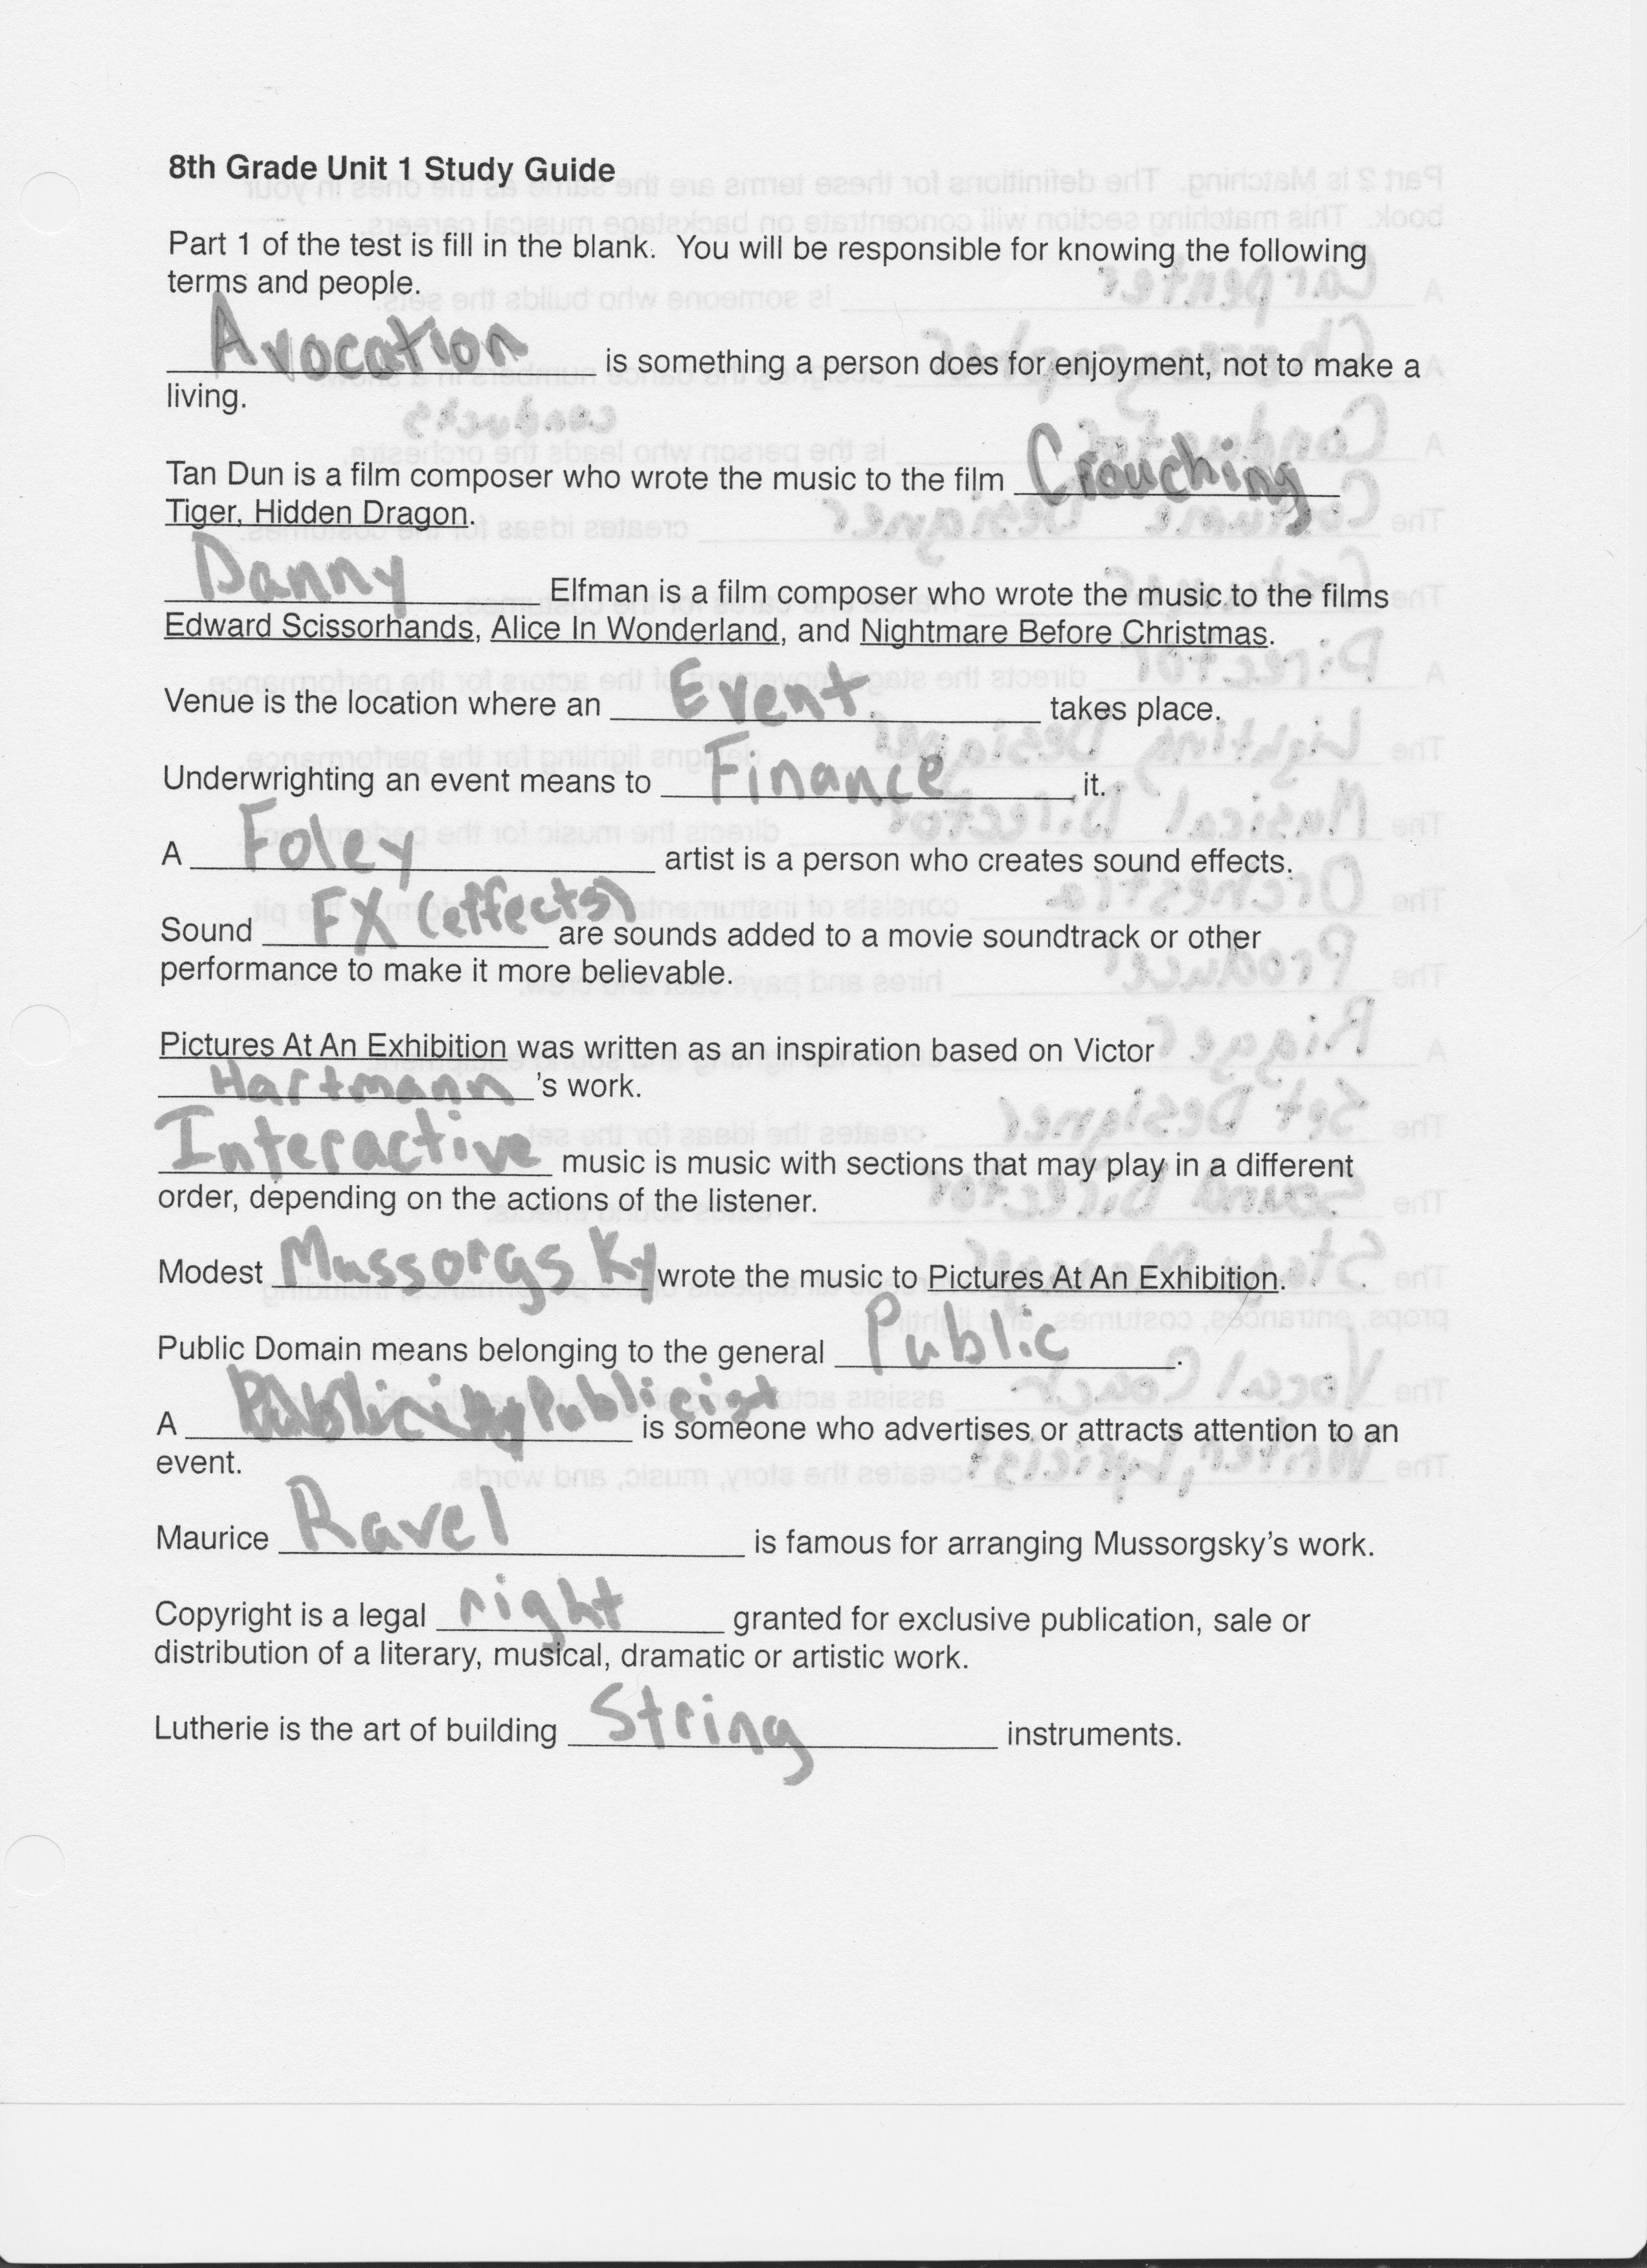 8th Grade Unit 1 Study Guide
Part 1 of the test is fill in the blank. You will be responsible for knowing the following
terms and people.
Avocation is something a person does for enjoyment, not to make a
living.
Tan Dun is a film composer who wrote the music to the film Crouching
Tiger, Hidden Dragon.
Danny Elfman is a film composer who wrote the music to the films
Edward Scissorhands, Alice In Wonderland, and Nightmare Before Christmas.
Venue is the location where an Event takes place.
Underwrighting an event means to Finance it.
A Foley artist is a person who creates sound effects.
Sound FX (effects) are sounds added to a movie soundtrack or other
performance to make it more believable.
Pictures At An Exhibition was written as an inspiration based on Victor
Hartmann 's work.
Interactive music is music with sections that may play in a different
order, depending on the actions of the listener.
Modest Mussorgsky wrote the music to Pictures At An Exhibition.
Public Domain means belonging to the general Public.
A Publicist is someone who advertises or attracts attention to an
event.
Maurice Ravel is famous for arranging Mussorgsky's work.
Copyright is a legal right granted for exclusive publication, sale or
distribution of a literary, musical, dramatic or artistic work.
Lutherie is the art of building String instruments.